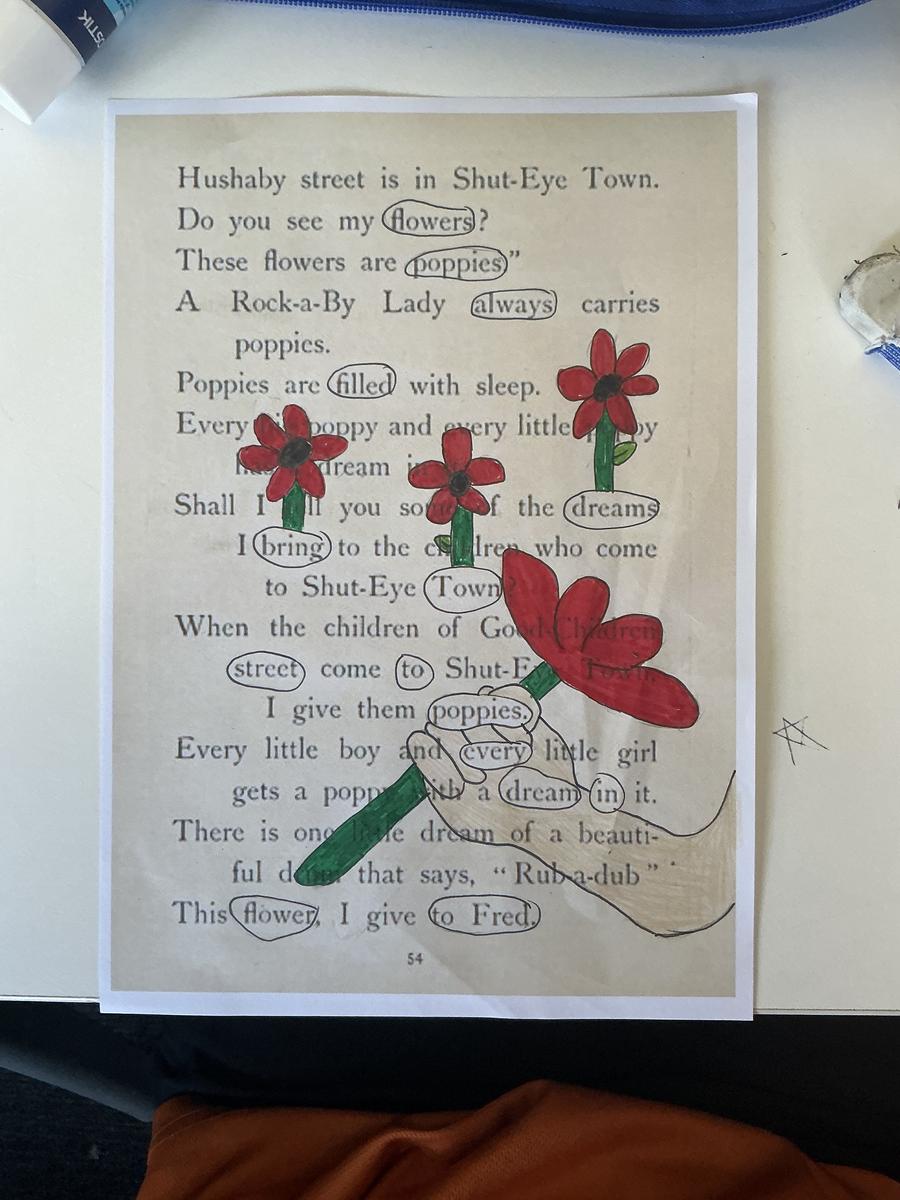 STIK
Hushaby street is in Shut-Eye Town.
Do you see my flowers?
These flowers are poppies”
A Rock-a-By Lady always carries
poppies.
Poppies are filled with sleep.
Every poppy and every little poppy
has dream in
Shall I tell you some of the dreams
I bring to the children who come
to Shut-Eye Town?
When the children of Good-Children
street come to Shut-Eye Town,
I give them poppies.
Every little boy and every little girl
gets a poppy with a dream in it.
There is one little dream of a beauti-
ful d that says, “Rub-a-dub”
This flower, I give to Fred.
54